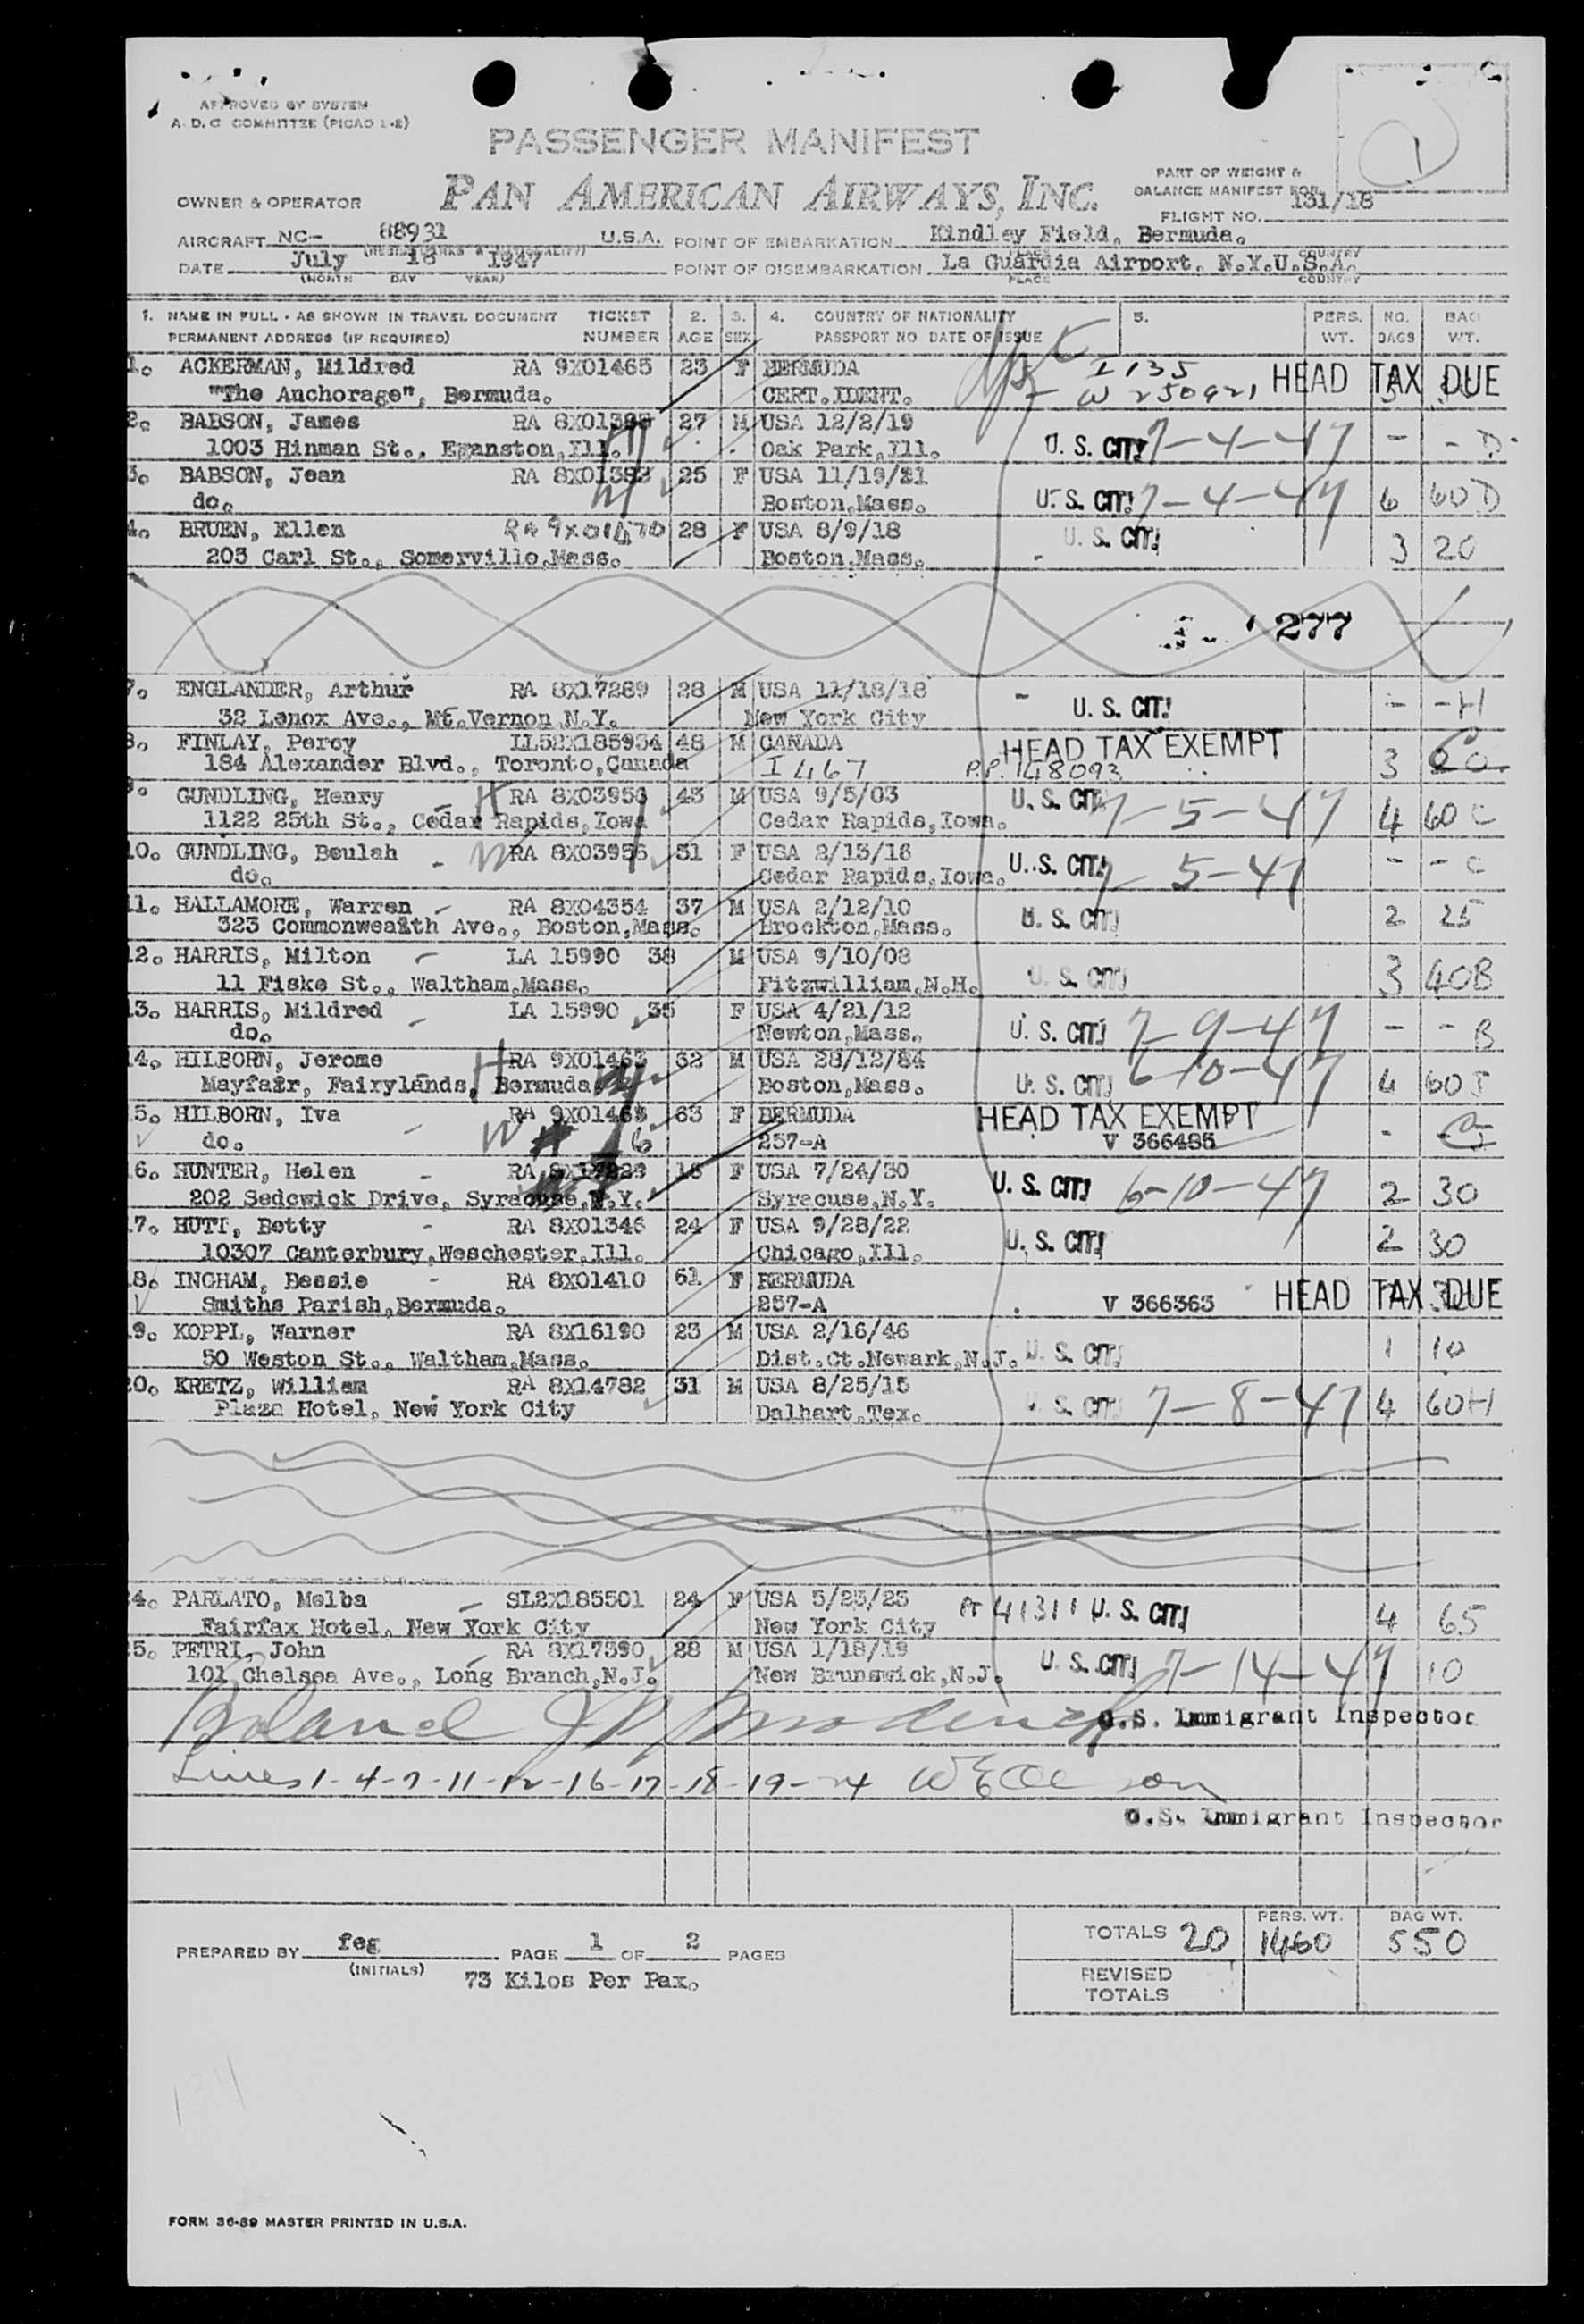 APPROVED BY SYSTEM
A.D.C COMMITTEE (PICAO 1-2)
PASSENGER MANIFEST
PART OF WEIGHT &
BALANCE MANIFEST FOR
OWNER & OPERATOR PAN AMERICAN AIRWAYS, INC. FLIGHT NO. 131/18
AIRCRAFT NC- 88931 U.S.A. POINT OF EMBARKATION Kindley Field, Bermuda.
DATE July 18 1947 POINT OF DISEMBARKATION La Guardia Airport, N.Y.U.S.A.
(MONTH DAY YEAR) PLACE COUNTRY
1. NAME IN FULL - AS SHOWN IN TRAVEL DOCUMENT TICKET 2. 3. 4. COUNTRY OF NATIONALITY 5. PERS. NO. BAG
PERMANENT ADDRESS (IF REQUIRED) NUMBER AGE SEX PASSPORT NO DATE OF ISSUE WT. BAGS WT.
1. ACKERMAN, Mildred RA 9X01465 23 F BERMUDA I 135 HEAD TAX DUE
"The Anchorage", Bermuda. CERT.IDENT.
2. BABSON, James 27 M USA 12/2/19 U. S. CIT! 7-4-47 - - D
1003 Hinman St., Evanston,Ill. Oak Park,Ill.
3. BABSON, Jean RA 8X01383 25 F USA 11/19/21 U. S. CIT! 7-4-47 6 60 D
do. Boston,Mass.
4. BRUEN, Ellen RA 9X01470 28 F USA 8/9/18 U. S. CIT!
203 Carl St., Somerville,Mass. Boston,Mass. 3 20
277
7. ENGLANDER, Arthur RA 8X17289 28 M USA 11/18/18 U. S. CIT! - - H
32 Lenox Ave., Mt.Vernon,N.Y. New York City
8. FINLAY, Percy LL52X185934 48 M CANADA HEAD TAX EXEMPT
184 Alexander Blvd., Toronto,Canada I 467 P.P. 148093 3
9. GUNDLING, Henry H RA 8X03956 43 M USA 9/5/03 U. S. CIT! 7-5-47 4 60 C
1122 25th St., Cedar Rapids,Iowa Cedar Rapids,Iowa.
10. GUNDLING, Beulah W RA 8X03955 31 F USA 2/15/16 U. S. CIT! 7-5-47 - - C
do. Cedar Rapids,Iowa.
11. HALLAMORE, Warren RA 8X04354 37 M USA 2/12/10 U. S. CIT! 2 25
323 Commonwealth Ave., Boston,Mass. Brockton,Mass.
12. HARRIS, Milton LA 15990 38 M USA 9/10/08 U. S. CIT! 3 40B
11 Fiske St., Waltham,Mass. Fitzwilliam,N.H.
13. HARRIS, Mildred LA 15990 35 F USA 4/21/12 U. S. CIT! 7-9-47 - - B
do. Newton,Mass.
14. HILBORN, Jerome H RA 9X01463 62 M USA 28/12/84 U. S. CIT! 6-10-47 4 60 J
Mayfair, Fairylands, Bermuda Boston,Mass.
15. HILBORN, Iva RA 9X01463 63 F BERMUDA HEAD TAX EXEMPT
do. W 257-A V 366485 -
16. HUNTER, Helen 16 F USA 7/24/30 U. S. CIT! 6-10-47 2 30
202 Sedgwick Drive, Syracuse,N.Y. Syracuse,N.Y.
17. HUTT, Betty RA 8X01346 24 F USA 9/28/22 U. S. CIT! 2 30
10307 Canterbury,Weschester,Ill. Chicago,Ill.
18. INGHAM, Bessie RA 8X01410 61 F BERMUDA HEAD TAX DUE
Smiths Parish,Bermuda. 257-A V 366363
19. KOPPL, Warner RA 8X16190 23 M USA 2/16/46 U. S. CIT! 1 10
50 Weston St., Waltham,Mass. Dist.Ct.Newark,N.J.
20. KRETZ, William RA 8X14782 31 M USA 8/25/15 U. S. CIT! 7-8-47 4 60H
Plaza Hotel, New York City Dalhart,Tex.
24. PARLATO, Melba SL2X185501 24 F USA 5/23/23 41311 U. S. CIT! 4 65
Fairfax Hotel, New York City New York City
25. PETRI, John RA 8X17390 28 M USA 1/18/19 U. S. CIT! 7-14-47 10
101 Chelsea Ave., Long Branch,N.J. New Brunswick,N.J.
U.S. Immigrant Inspector
Lines 1-4-7-11-12-16-17-18-19-24
U.S. Immigrant Inspector
PREPARED BY feg PAGE 1 OF 2 PAGES
(INITIALS) 73 Kilos Per Pax.
PERS. WT. BAG WT.
TOTALS 20 1460 550
REVISED
TOTALS
FORM 36-89 MASTER PRINTED IN U.S.A.